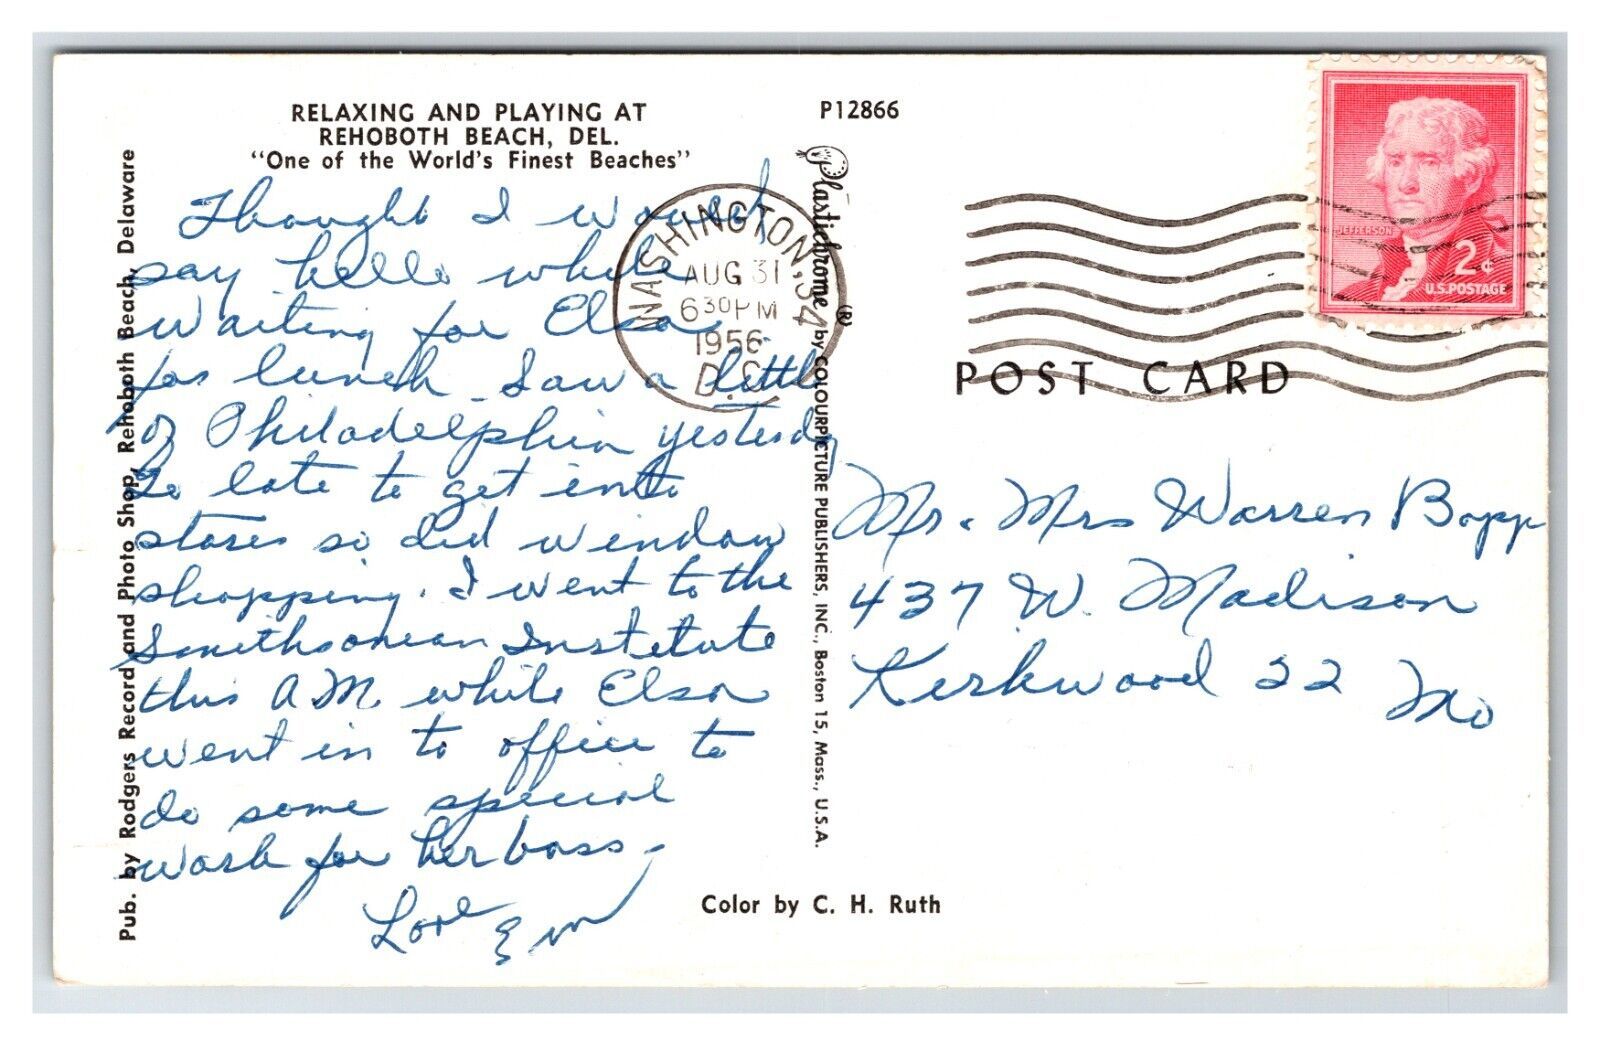 RELAXING AND PLAYING AT
REHOBOTH BEACH, DEL.
"One of the World's Finest Beaches"
P12866
Thought I would
say hello while
waiting for Elsa
for lunch. Saw a little
of Philadelphia yesterday
To late to get into
stores so did window
shopping. I went to the
Smithsonian Institute
this A.M. while Elsa
went in to office to
do some special
work for her boss -
Love Em
Pub. by Rodgers Record and Photo Shop, Rehoboth Beach, Delaware
WASHINGTON, 34
AUG 31
630PM
1956
D.C.
Plastichrome ® by COLOURPICTURE PUBLISHERS, INC., Boston 15, Mass., U.S.A.
JEFFERSON
2¢
U.S. POSTAGE
POST CARD
Mr. Mrs Warren Bopp
437 W. Madison
Kirkwood 22 Mo
Color by C. H. Ruth